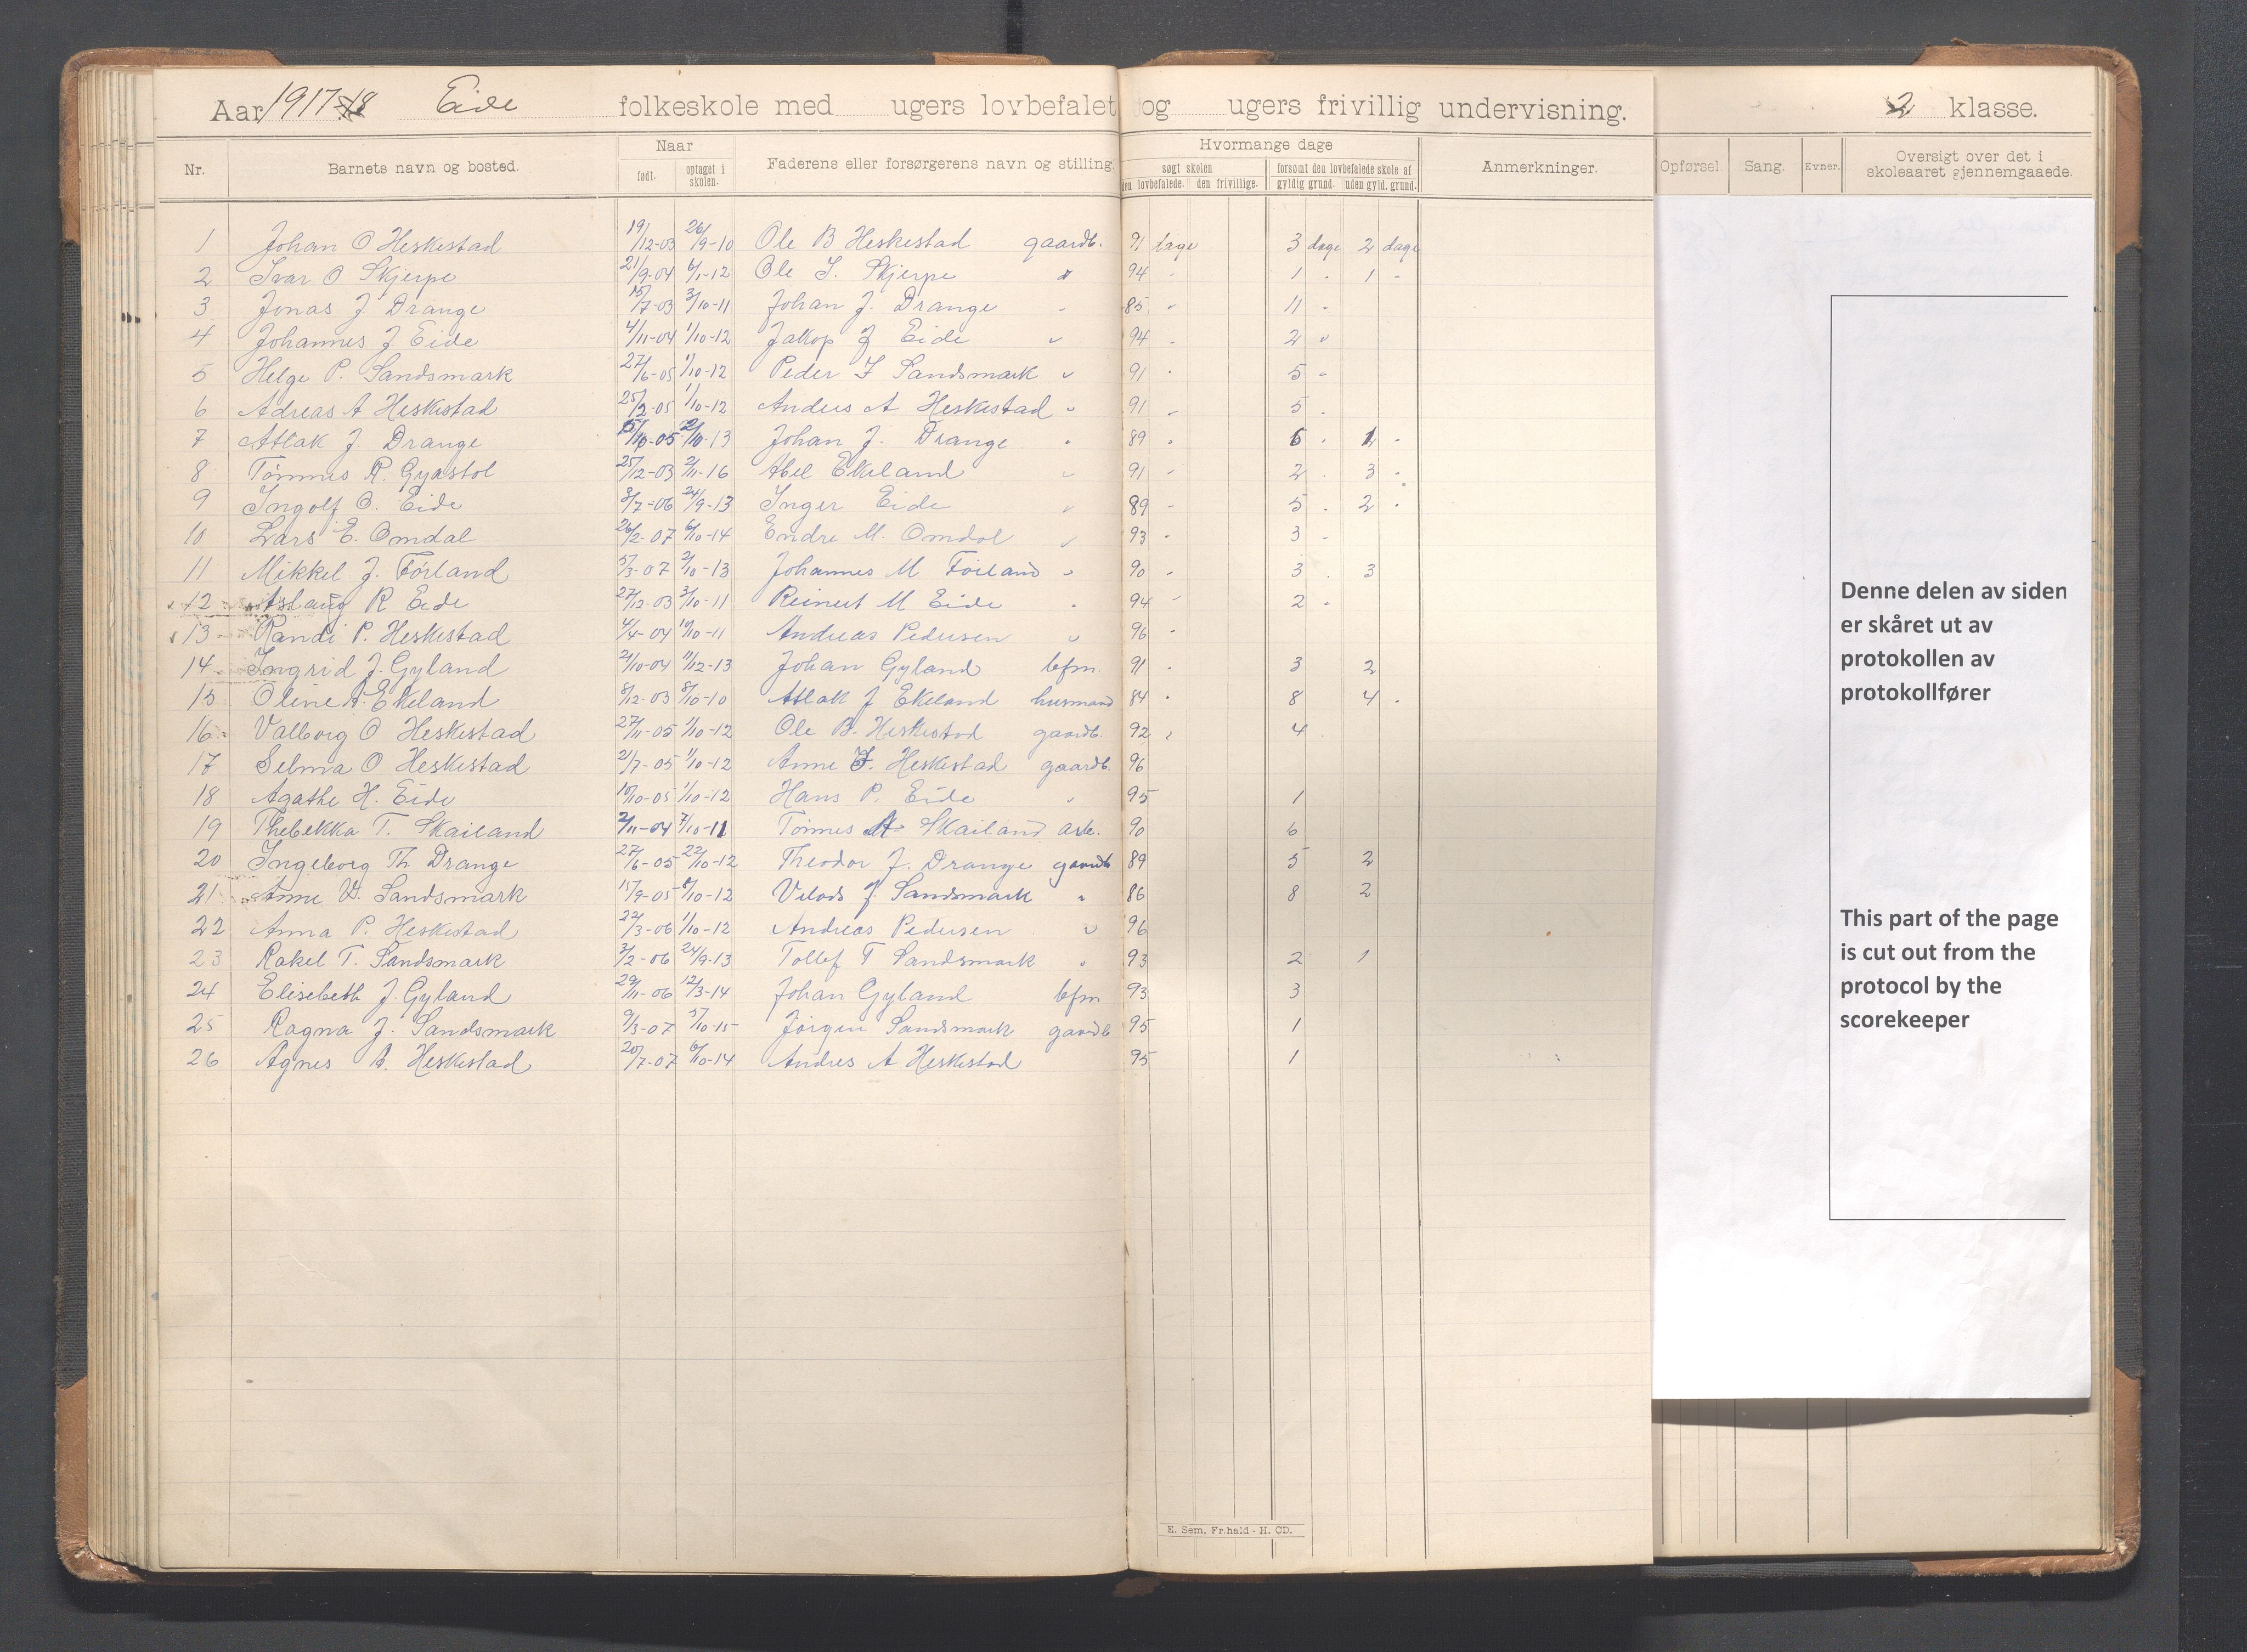 Aar 1917-18 Eide folkeskole med ugers lovbefalet og ugers frivillig undervisning. 2 klasse.
Nr. Barnets navn og bosted. Naar født. optaget i skolen. Faderens eller forsørgerens navn og stilling. Hvormange dage søgt skolen den lovbefalede. den frivillige. forsømt den lovbefalede skole af gyldig grund. uden gyld. grund. Anmerkninger. Opførsel. Sang. Evner. Oversigt over det i skoleaaret gjennemgaaede.
1 Johan O Heskestad 19/12-03 26/9-10 Ole B Heskestad gaardb. 91 dage 3 dage 2 dage
2 Ivar O Skjerpe 21/9-04 6/1-12 Ole I. Skjerpe " 94 " 1 " 1 "
3 Jonas J Drange 15/7-03 3/10-11 Johan J. Drange " 85 " 11 "
4 Johannes J Eide 4/11-04 1/10-12 Jakop J Eide " 94 " 2 "
5 Helge P. Sandsmark 27/6-05 1/10-12 Peder I Sandsmark " 91 " 5 "
6 Adreas A Heskestad 25/2-05 1/10-12 Anders A Heskestad " 91 " 5 "
7 Atlak J. Drange /10-05 /10-13 Johan J. Drange " 89 " 6 " 1 "
8 Tønnes R. Gyastøl 25/12-03 2/11-16 Abel Ekeland " 91 " 2 " 3 "
9 Ingolf O. Eide 8/7-06 24/9-13 Inger Eide " 89 " 5 " 2 "
10 Lars E. Omdal 26/2-07 6/10-14 Endre M. Omdal " 93 " 3 "
11 Mikkel J. Førland 5/3-07 2/10-13 Johannes M Førland " 90 " 3 " 3
12 Aslaug R Eide 27/12-03 3/10-11 Reinert M Eide " 94 " 2 "
13 Randi P. Heskestad 4/4-04 10/10-11 Andreas Pedersen " 96 "
14 Ingrid J. Gyland 21/10-04 11/12-13 Johan Gyland bfm. 91 " 3 2
15 Oline A. Ekeland 8/12-03 8/10-10 Atlak J Ekeland husmand 84 " 8 4 "
16 Valborg O Heskestad 27/11-05 1/10-12 Ole B. Heskestad gaardb. 92 " 4
17 Selma O Heskestad 21/7-05 1/10-12 Anne Heskestad gaardb. 96
18 Agathe H. Eide 10/10-05 1/10-12 Hans P. Eide " 95 1
19 Thebekka T. Skailand 2/11-04 7/10-11 Tønnes A Skailand arb. 90 6
20 Ingeborg Th. Drange 27/6-05 22/10-12 Theodor J. Drange gaardb 89 5 2
21 Anne V. Sandsmark 15/9-05 /10-12 J. Sandsmark " 86 8 2
22 Anna P. Heskestad 22/3-06 1/10-12 Andreas Pedersen " 96
23 Rakel T. Sandsmark 3/2-06 24/9-13 Tollef T Sandsmark " 93 2 1
24 Elisebeth J. Gyland 29/11-06 12/3-14 Johan Gyland bfm 93 3
25 Ragna J. Sandsmark 9/3-07 5/10-15 Jørgen Sandsmark gaardb 95 1
26 Agnes A. Heskestad 20/7-07 6/10-14 Andres A Heskestad 95 1
E. Sem, Fr.hald - H. CD.
Denne delen av siden
er skåret ut av
protokollen av
protokollfører
This part of the page
is cut out from the
protocol by the
scorekeeper